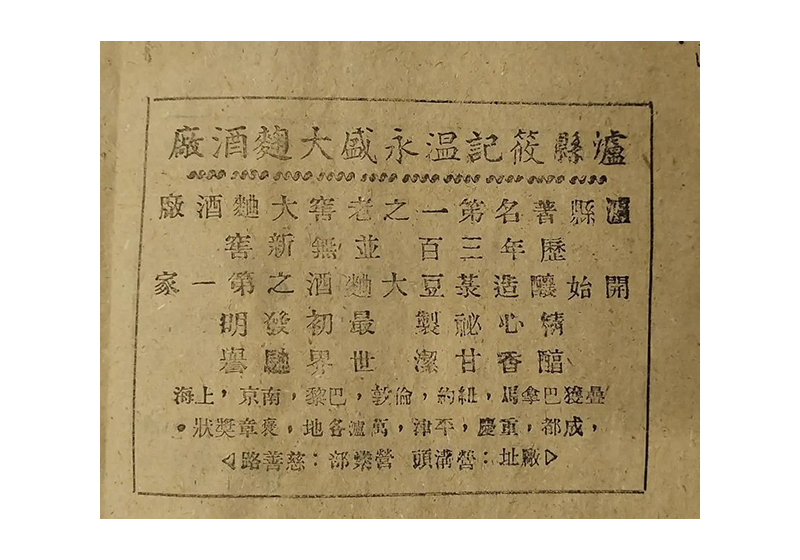 瀘縣筱記温永盛大麴酒廠
瀘縣著名第一之老窖大麯酒廠
歷年三百 並無新窖
開始釀造菉豆大麯酒之第一家
精心祕製 最初發明
醕香甘潔 世界馳譽
疊獲巴拿馬,紐約,倫敦,巴黎,南京,上海
,成都,重慶,平津,萬瀘各地,褒章獎狀。
▷廠址:營溝頭 營業部:慈善路◁